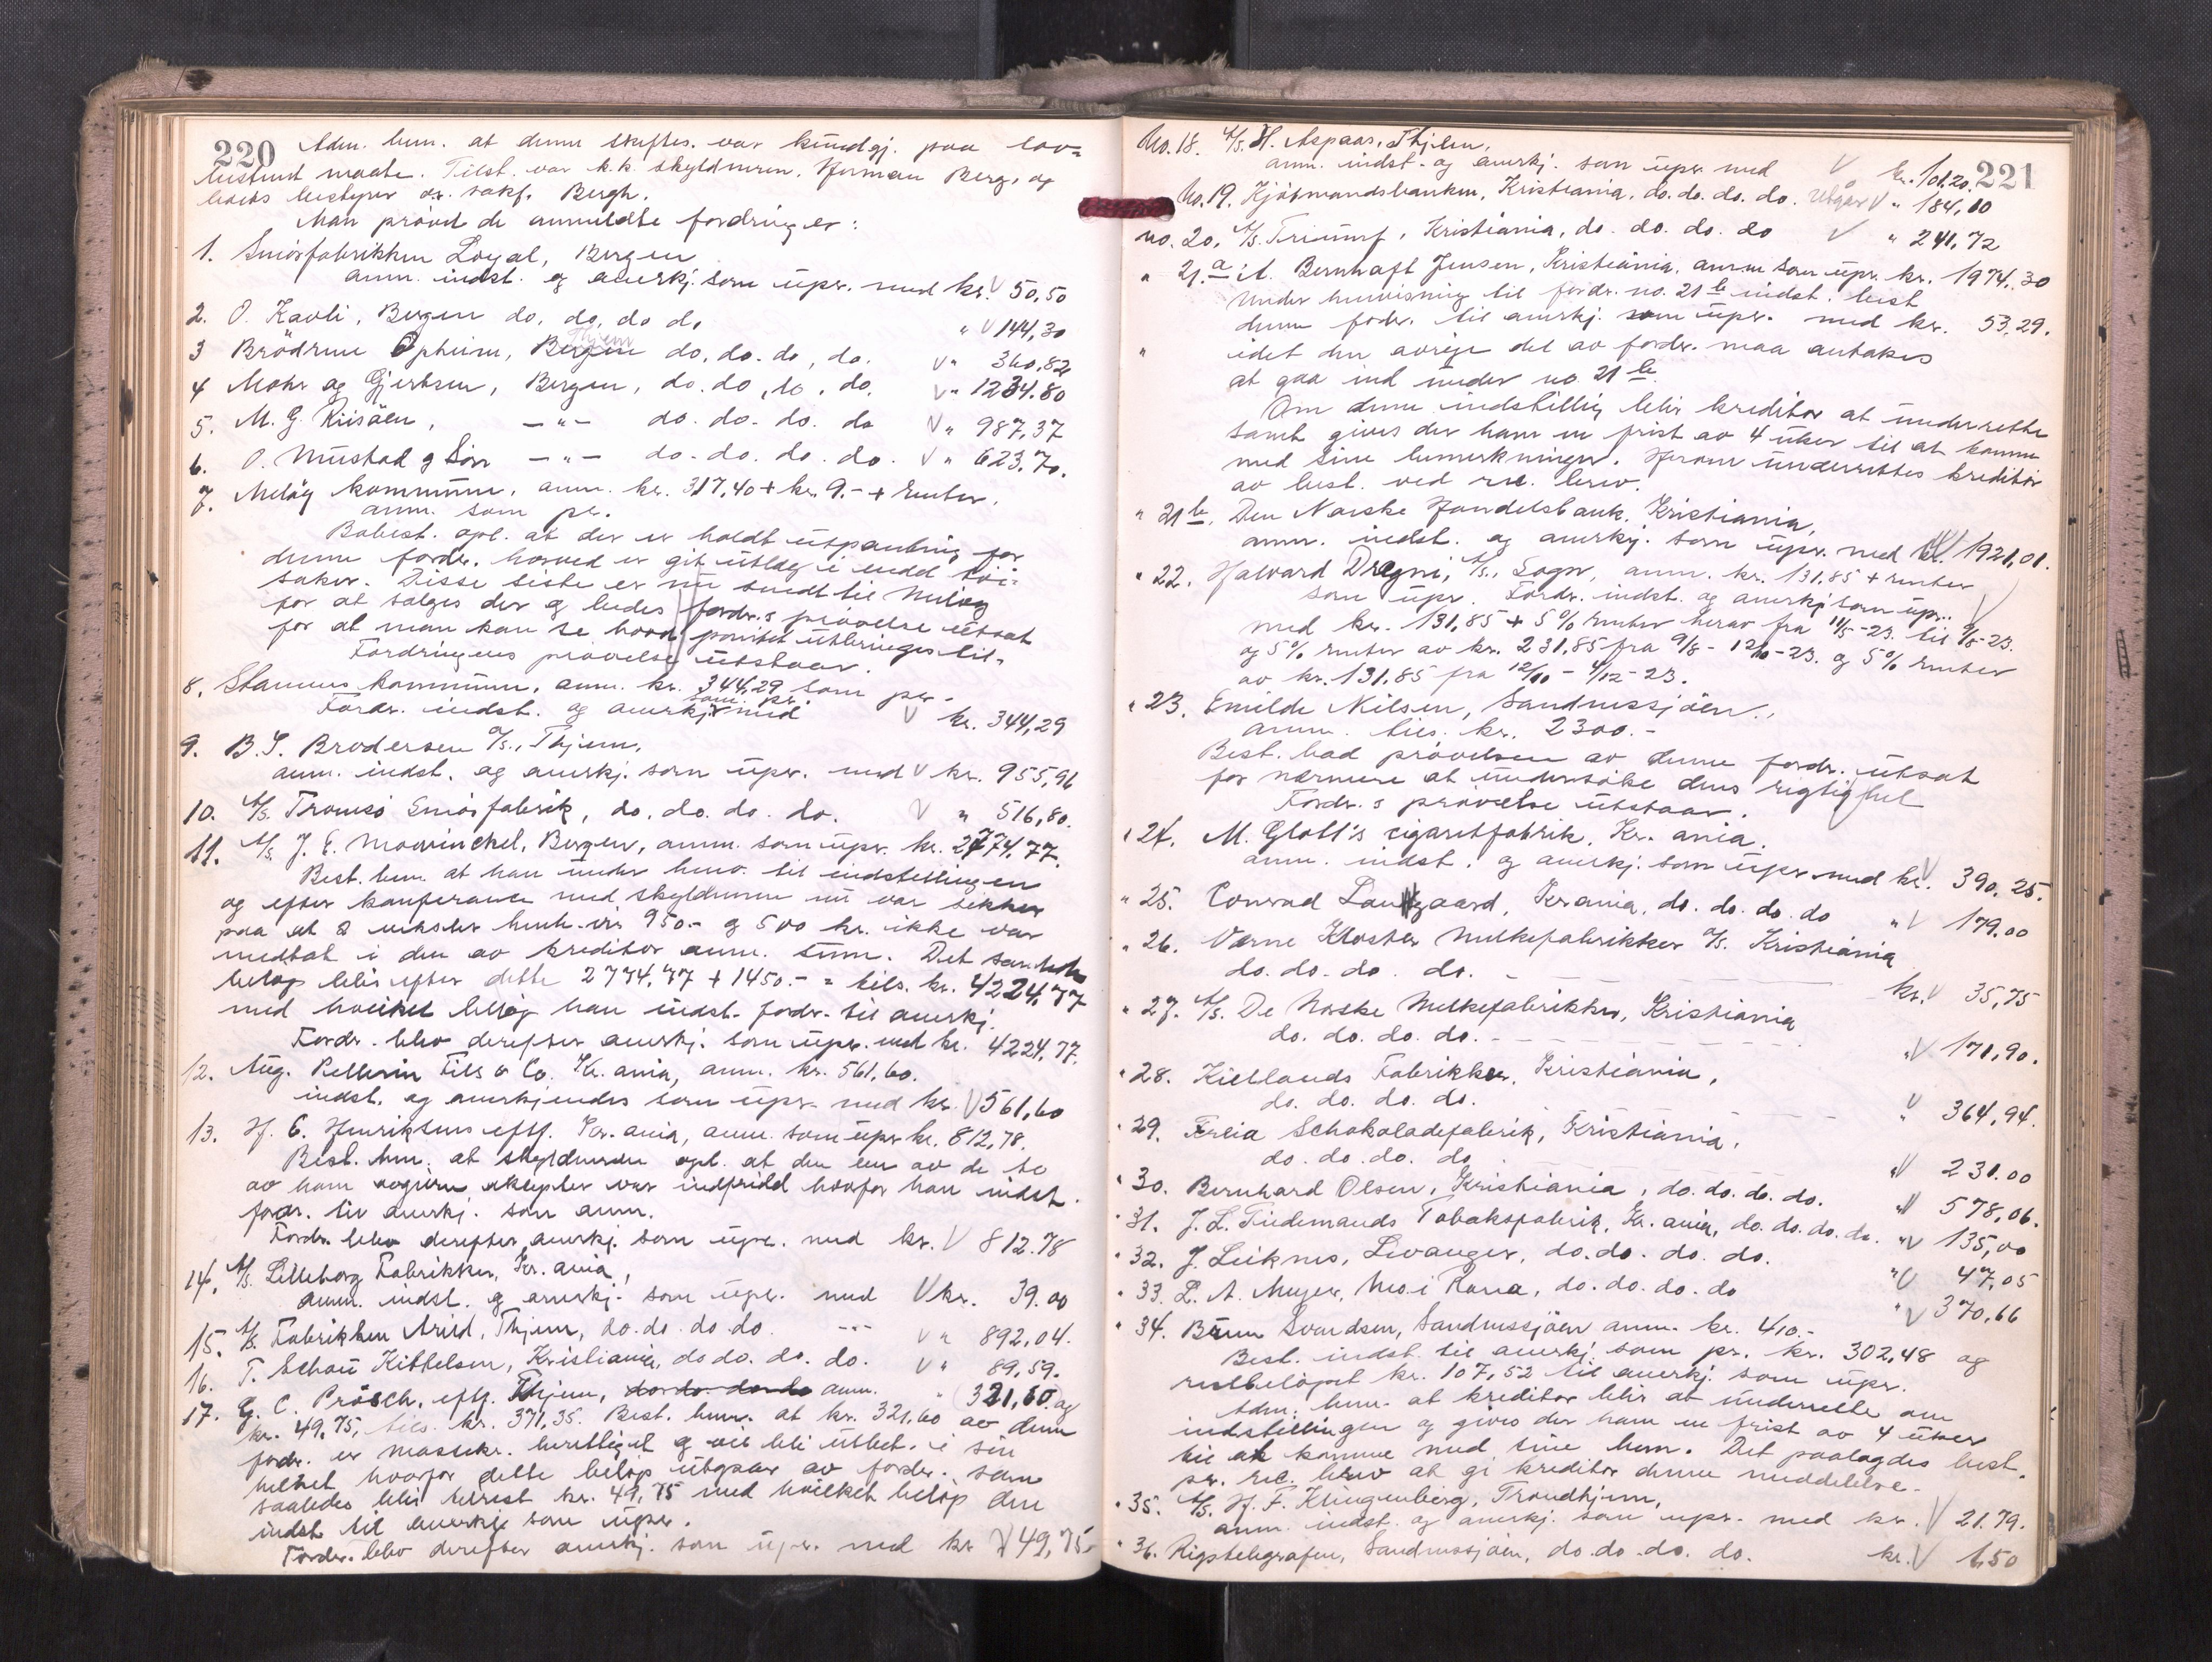 220
Adm. bem. at denne skiftes. var kundgj. paa lov=
bestemt maate. Tilst. var k.k. skyldneren. Herman Berg, og
boets bestyrer or. sakf. Bergh.
Man prövet de anmeldte fordringer:
1. Smörfabrikken Loyal, Bergen
anm. indst. og anerkj. som upr. med kr. 50,50
2. O. Kavli, Bergen do. do. do do " 144,30
3 Brödrene Opheim, Bergen Thjem do. do. do, do. " 360,82
4 Mohr og Gjertsen, Bergen, do. do, do, do. " 1234.80
5. M. G. Riisöen, —"— do. do. do. do " 987,37
6. O. Mustad & Sön —"— do. do. do. do. " 623.70.
7. Melöy kommune, anm. kr. 317,40 + kr. 9.- + renter.
anm. som pr.
Bobest. opl. at der er holdt utpantning for
denne fordr. horved er git utlæg i endel tvi=
saker. Disse siste er nu sendt til Melöy
for at sælges der og bedes fordr.s prövelse utsat
for at man kan se hvad pantet utbringes til.
Fordringens prövelse utstaar.
8. Stamnes kommune, anm. kr. 344,29 som pr.
Fordr. indst. og anerkj. som pr. med kr. 344,29
9. B. S. Brodersen A/S., Thjem,
anm. indst. og anerkj. som upr. med kr. 955,96
10. A/S. Tromsö Smörfabrik, do. do. do. do. " 516,80.
11. A/S J. E. Mowinckel, Bergen, anm. som upr. kr. 2774,77.
Best. bem. at han under henv. til indstillingen
og efter konferance med skyldneren nu var sikker
paa at 2 veksler henh.vis 950.- og 500 kr. ikke var
medtat i den av kreditor anm. sum. Det samlede
belöp blir efter dette 2774,77 + 1450.- = tils. kr. 4224,77
med hvilket belöp han indst. fordr. til anerkj.
Fordr. blev derefter anerkj. som upr. med kr. 4224,77.
12. Aug. Pellerin Fils & Co. Kr.ania, anm. kr. 561,60.
indst. og anerkjendes som upr. med kr. 561,60
13. H. E. Henriksens eftf. Kr.ania, anm. som upr kr. 812,78.
Best. bem. at skyldneren opl. at den ene av de to
av ham angivne aksepter var indfridd hvorfor han indst.
fordr. til anerkj. som anm.
Fordr. blev derefter anerkj. som upr. med kr. 812.78
14. A/S. Lilleborg Fabrikker, Kr.ania,
anm. indst. og anerkj. som upr. med kr. 39.00
15. A/S. Fabrikken Arild, Thjem, do. do. do. do. --- " 892,04.
16. T. Schou Kittelsen, Kristiania, do do. do. do. " 89,59.
17. G. C. Prösch, eftf. Thjem, do do. do do anm. " 321,60 og
kr. 49,75, tils. kr. 371,35. Best. bem. at kr. 321,60 av denne
fordr. er massekr. berettiget og vil bli utbet. i sin
helhet hvorfor dette belöp utgaar av fordr. som
saaledes blir tilrest kr. 49,75 med hvilket belöp den
indst. til anerkj. som upr.
Fordr. blev derefter anerkj. som upr. med kr 49,75
221
No. 18. A/S. H. Aspaas, Thjem,
anm. indst. og anerkj. som upr. med kr. 101,20
No. 19. Kjöbmandsbanken, Kristiania, do. do. do. do. Utgår " 184,10
no. 20. A/S. Triumf, Kristiania, do. do. do. do " 241,72
" 21.a Bernhoft Jensen, Kristiania. anm. som upr. kr. 1974,30
Under henvisning til fordr. no. 21 b indst. best
denne fordr. til anerkj. som upr. med kr. 53,29.
" idet den övrige del av fordr. maa antakes
at gaa ind under no. 21 b.
Om denne indstilling blir kreditor at underrette
samt gives der ham en frist av 4 uker til at komme
med sine bemerkninger. Herom underrettes kreditor
av best. ved rec. brev.
" 21 b. Den Norske Handelsbank, Kristiania,
anm. indst. og anerkj. som upr. med kr. 1921,01.
" 22. Halvard Drægni, A/S., Sogn, anm. kr. 131,85 + renter
som upr. Fordr. indst. og anerkj som upr.
med kr. 131,85 + 5% renter herav fra 11/5-23. til 9/8-23.
og 5% renter av kr. 231,85 fra 9/8 - 12/10-23. og 5% renter
av kr. 131,85 fra 12/10 - 4/12-23.
" 23. Emilde Nilsen, Sandnessjöen.,
anm. tils. kr. 2300.-
Best. bad prövelsen av denne fordr. utsat
for nærmere at undersöke dens rigtighet
Fordr.s prövelse utstaar.
" 24. M. Glott's cigaretfabrik, Kr.ania.
anm. indst. og anerkj. som upr med kr. 390,25.
" 25. Conrad Langaard, Kr.ania, do. do. do. do " 179.00
" 26. Værne Kloster Melkefabrikker A/S. Kristiania
do. do. do. do. - kr. 35,75
" 27. A/S. De Norske Melkefabrikker, Kristiania
do. do. do. do. - " 171,90.
" 28. Kiellands Fabrikker, Kristiania,
do. do. do. do. " 364,94.
" 29. Freia Schokoladefabrik, Kristiania,
do. do. do. do " 231.00
" 30. Bernhard Olsen, Kristiania, do. do. do. do. " 578,06.
" 31. J. L. Tiedemands Tobaksfabrik, Kr.ania, do. do. do. do. " 135,00
" 32. J. Leiknes, Levanger, do. do. do. do. " 47,05
" 33. L. A. Meyer, Mo i Rana, do. do. do. do " 370,66
" 34. Svendsen, Sandnessjöen anm. kr. 410.-
Best. indst. til anerkj. som pr. kr. 302,48 og
restbelöpet kr. 107,52 til anerkj. som upr.
Adm. bem. at kreditor blir at underrette om
indstillingen og gives der ham en frist av 4 uker
til at komme med sine bem. Det paalægdes best.
pr. rec. brev at gi kreditor denne meddelelse.
" 35. A/S. H. F. Klingenberg, Trondhjem,
anm. indst. og anerkj. som upr. med kr. 21.79.
" 36. Rigstelegrafen, Sandnessjöen, do. do. do. do. kr. 1,50